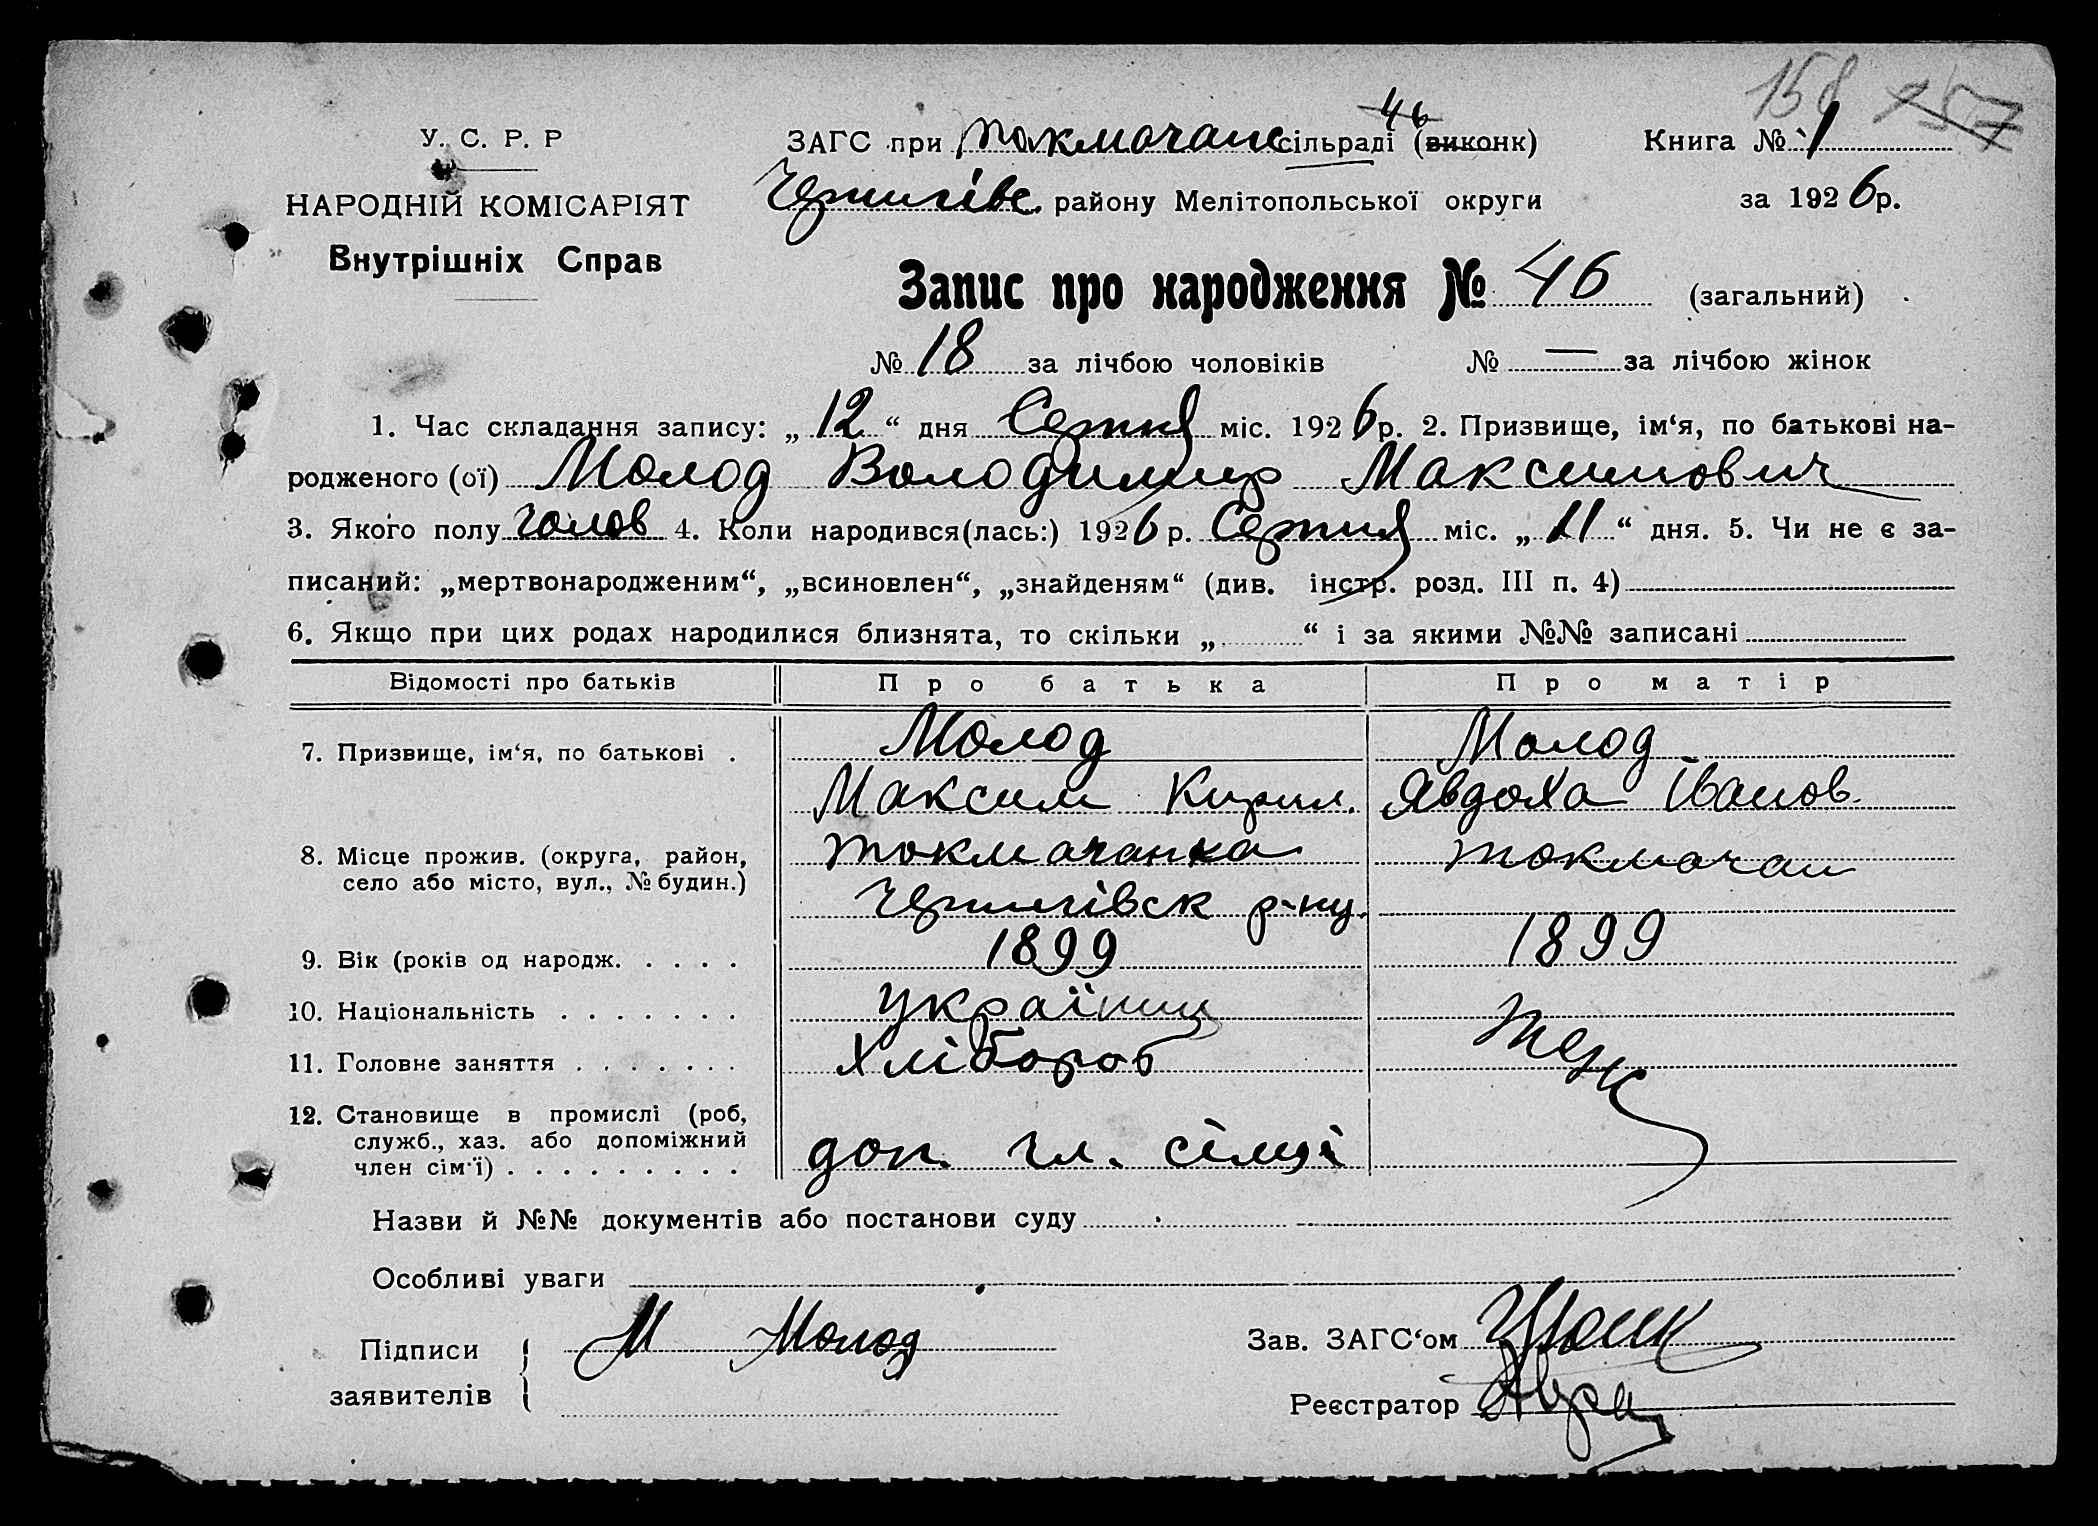 158 157
46
У. С. Р. Р ЗАГС при Токмачанс сільраді (виконк) Книга № 1
НАРОДНІЙ КОМІСАРІЯТ Чернігівс. району Мелітопольської округи за 1926р.
Внутрішніх Справ
Запис про народження № 46 (загальний)
№ 18 за лічбою чоловіків № — за лічбою жінок
1. Час складання запису: „ 12 “ дня Серпня міс. 1926р. 2. Призвище, ім‘я, по батькові на-
родженого (ої) Молод Володимир Максимович
3. Якого полу чолов 4. Коли народився(лась:) 1926р. Серпня міс. „ 11 “ дня. 5. Чи не є за-
писаний: „мертвонародженим“, „всиновлен“, „знайденям“ (див. інстр. розд. III п. 4)
6. Якщо при цих родах народилися близнята, то скільки „ “ і за якими №№ записані
Відомості про батьків Про батька Про матір
7. Призвище, ім‘я, по батькові . Молод Молод
Максим Кирил. Явдоха Іванов.
8. Місце прожив. (округа, район, Токмачанка Токмачан
село або місто, вул., № будин.)
Чернигівск р-ну.
9. Вік (років од народж. . . . . 1899 1899
10. Національність . . . . . . . українц
11. Головне заняття . . . . . . . Хлібороб Теж
12. Становище в промислі (роб,
служб., хаз. або допоміжний доп. гл. сімї
член сім‘ї) . . . . . . . . .
Назви й №№ документів або постанови суду
Особливі уваги
Підписи М Молод Зав. ЗАГС‘ом
заявителів Реєстратор